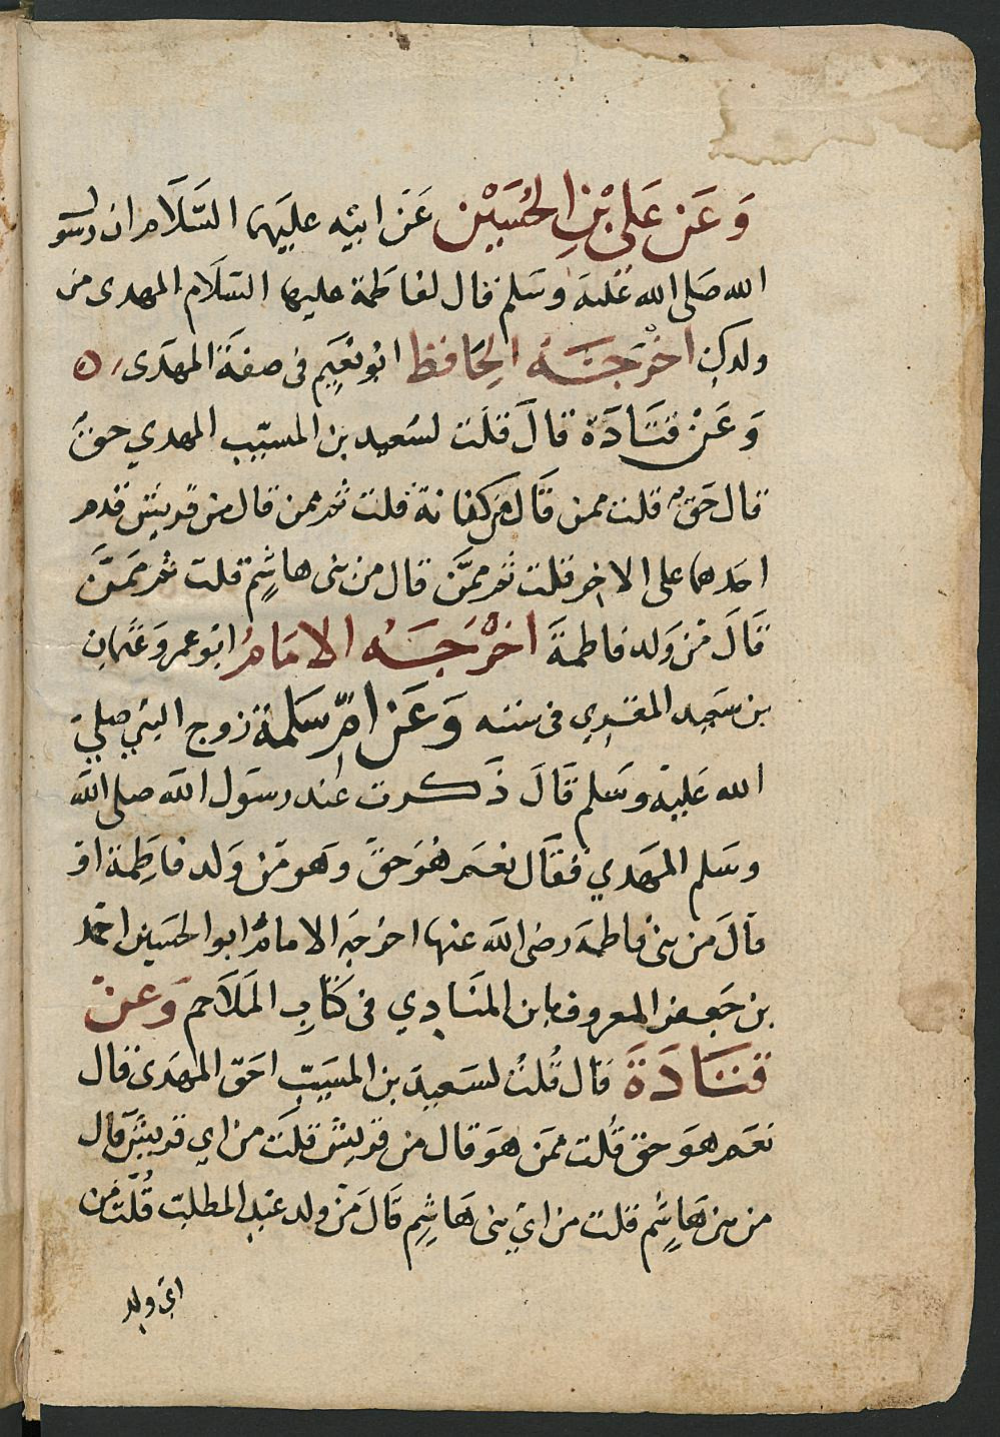 وَعَن عَلى بْنِ الحُسَيْن عَن ابيْه عليَهما السَّلَام ان رسول
الله صَلى الله عليه وسَلم قال لفاطمة عليها السّلام المهدى من
ولدكِ اخرَجَه الحَافظ ابُو نعَيم فى صفَة المهدَى ه
وَعَنْ قتَادَة قالَ قلَت لسَعيد بن المسيّب المهدي حقٌ
قال حَقٌ قلت ممن قَال من كنانة قلت ثم ممن قال من قريش قدم
احدهما على الاخر قلت ثم ممَّن قال من بنى هاشِم قلت ثم ممَّن
قَالَ مْن وَلد فاطمَة اخْرَجَه الامَامُ ابُو عمرو عثمان
بن سَعيد المقري فى سننه وَعَن امّ سَلمة زوج النبي صلي
الله عَليْه وسَلم قَالَ ذَكرت عند رسَول الله صلى الله
وسَلم المهَدي فقَال نعَم هُوَحق وهَو مْن وَلد فاطِمة اوْ
قالَ من بنى فاطمة رضى الله عنها اخرجَه الامامُ ابوا الحسَين احمَد
بن جَعفر المعروف بابن المنَادِي فى كتَابِ المَلَاحم وَعنْ
قتَادَةَ قال قُلتُ لسَعيدَ بن المسَيبّ احَق المهدَى قال
نعَم هوَ حق قُلت ممَن هوَ قال من قريش قلَت من اي قريش قال
من بنى هَاشِم قلت من ايْ بنى هَاشِم قَالَ مَن ولد عَبْد المطلبّ قُلت من
ايْ ولد